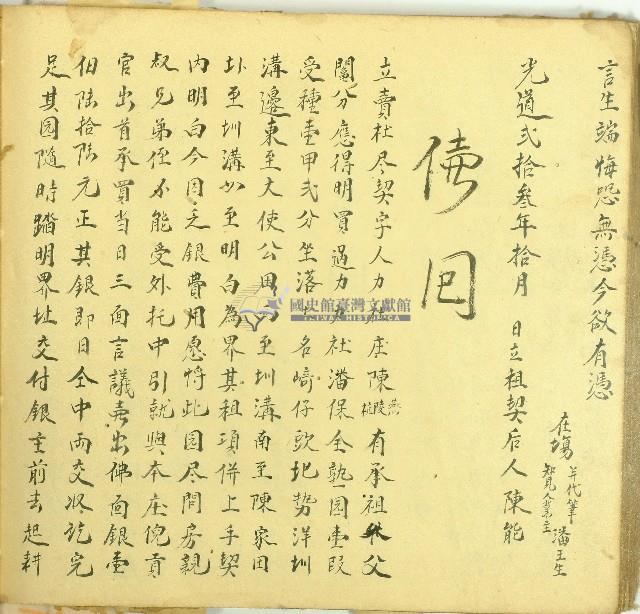 言生端悔恐無憑今欲有憑
在塲
知見人業主
年代筆潘王生
光道弍拾叁年拾月 日立祖契后人陳能
立賣杜尽契字人力社庄陳有承祖父
鬮分應得明買過力力社潘保全熟园壹段
受種壹甲弍分坐落土名崎仔頭圯勢洋圳
溝邊東至大使公田西至圳溝南至陳家田
圤至圳溝四至明白為界其租項併上手契
内明白今因乏銀費用愿將此园尽問房親
叔兄弟侄不能受外托中引就與本庄倪貢
官出首承買当日三面言議壳出佛面銀壹
佰陸拾陸元正其銀即日仝中両交收訖完
足其园隨時踏明界址交付銀主前去起耕
國史館臺灣文獻館
TAIWAN HISTORICA